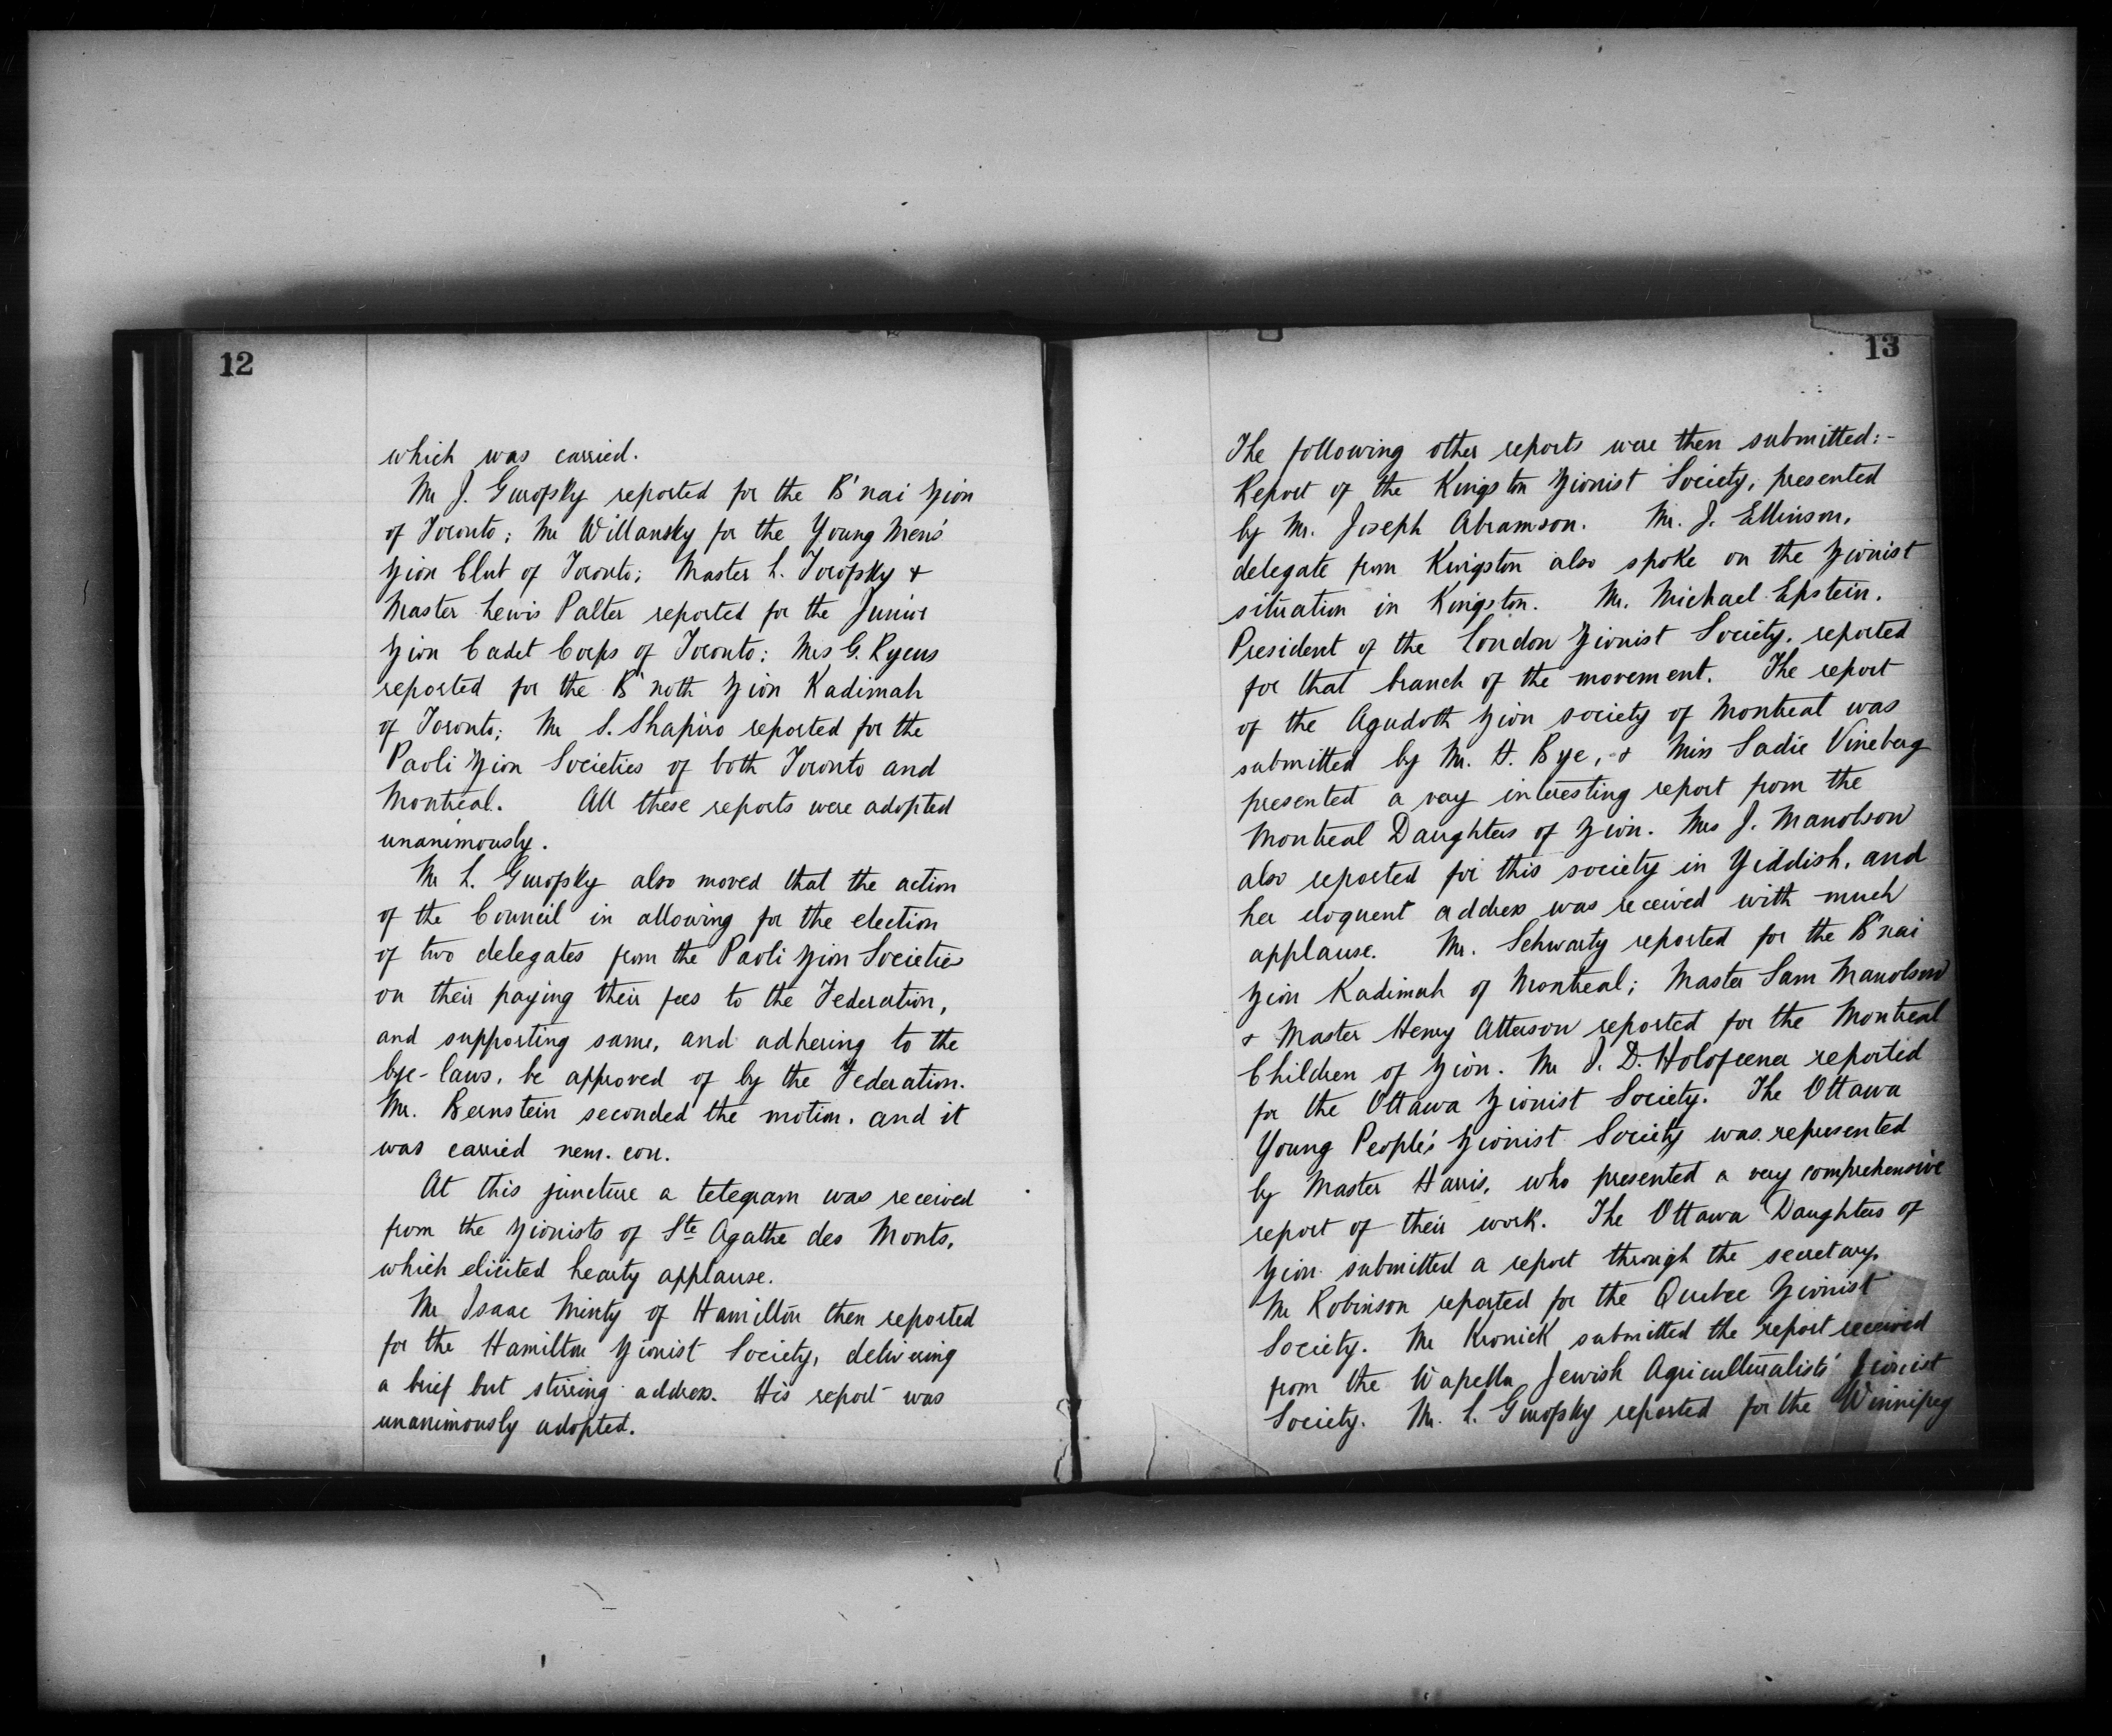 12
which was carried.
Mr J. Gurofsky reported for the B'nai Zion
of Toronto; Mr Willansky for the Young Men's
Zion Club of Toronto; Master L. Torofsky &
Master Lewis Palter reported for the Junior
Zion Cadet Corps of Toronto; Mrs G. Ryeus
reported for the B'noth Zion Kadimah
of Toronto; Mr S. Shapiro reported for the
Paoli Zion Societies of both Toronto and
Montreal. All these reports were adopted
unanimously.
Mr L. Gurofsky also moved that the action
of the Council in allowing for the election
of two delegates from the Paoli Zion Societies
on their paying their fees to the Federation,
and supporting same, and adhering to the
bye-laws, be approved of by the Federation.
Mr. Bernstein seconded the motion, and it
was carried nem. con.
At this juncture a telegram was received
from the Zionists of Ste Agathe des Monts,
which elicited hearty applause.
Mr Isaac Minty of Hamilton then reported
for the Hamilton Zionist Society, delivering
a brief but stirring address. His report was
unanimously adopted.
13
The following other reports were then submitted:-
Report of the Kingston Zionist Society, presented
by Mr. Joseph Abramson. Mr. J. Ellinson,
delegate from Kingston also spoke on the Zionist
situation in Kingston. Mr. Michael Epstein,
President of the London Zionist Society, reported
for that branch of the movement. The report
of the Agudoth Zion society of Montreal was
submitted by Mr. H. Bye, & Miss Sadie Vineberg
presented a very interesting report from the
Montreal Daughters of Zion. Mrs J. Manolson
also reported for this society in Yiddish, and
her eloquent address was received with much
applause. Mr. Schwartz reported for the B'nai
Zion Kadimah of Montreal; Master Sam Manolson
& Master Henry Atterson reported for the Montreal
Children of Zion. Mr J. D. Holofcener reported
for the Ottawa Zionist Society. The Ottawa
Young People's Zionist Society was represented
by Master Harris, who presented a very comprehensive
report of their work. The Ottawa Daughters of
Zion submitted a report through the secretary.
Mr Robinson reported for the Quebec Zionist
Society. Mr Kronick submitted the report received
from the Wapella Jewish Agriculturalists' Zionist
Society. Mr. L. Gurofsky reported for the Winnipeg